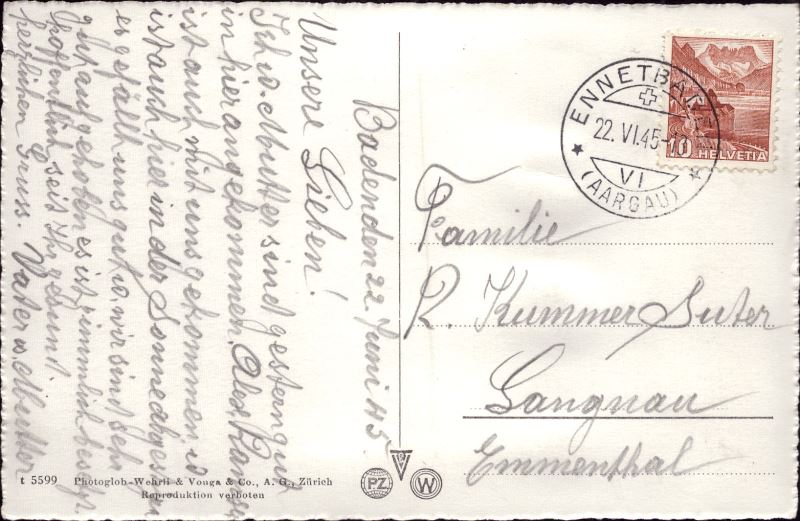 Baden den 22. Juni 45
Unsere Lieben!
Ich u. Mutter sind gestern gut
in hier angekommen. Alex
ist auch mit uns gekommen u.
ist auch hier in der Sonne
es gefällt uns gut u. wir sind sehr
gut aufgehoben es ist zimmlich besetzt.
hoffentlich seit Ihr gesund
herzlichen Gruss. Vater u. Mutter
ENNETBADEN
22. VI. 45
VI
(AARGAU)
10 HELVETIA
Familie
R. Kummer Suter
Langnau
Emmenthal
t 5599 Photoglob-Wehrli & Vouga & Co., A. G., Zürich
Reproduktion verboten
PZ W